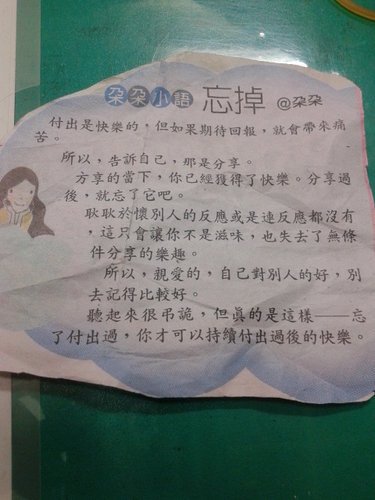 朵朵小語 忘掉 @朵朵
付出是快樂的，但如果期待回報，就會帶來痛
苦。
所以，告訴自己，那是分享。
方享的當下，你已經獲得了快樂。分享過
後，就忘了它吧。
耿耿於懷別人的反應或是連反應都沒有
，這只會讓你不是滋味，也失去了無條
件分享的樂趣。
所以，親愛的，自己對別人的好，別
去記得比較好。
聽起來很弔詭，但真的是這樣——忘
了付出過，你才可以持續付出過後的快樂。